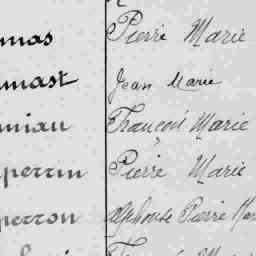 mas Pierre Marie
mast Jean Marie
miau François Marie
perrin Pierre Marie
perron Alphonse Pierre Mar